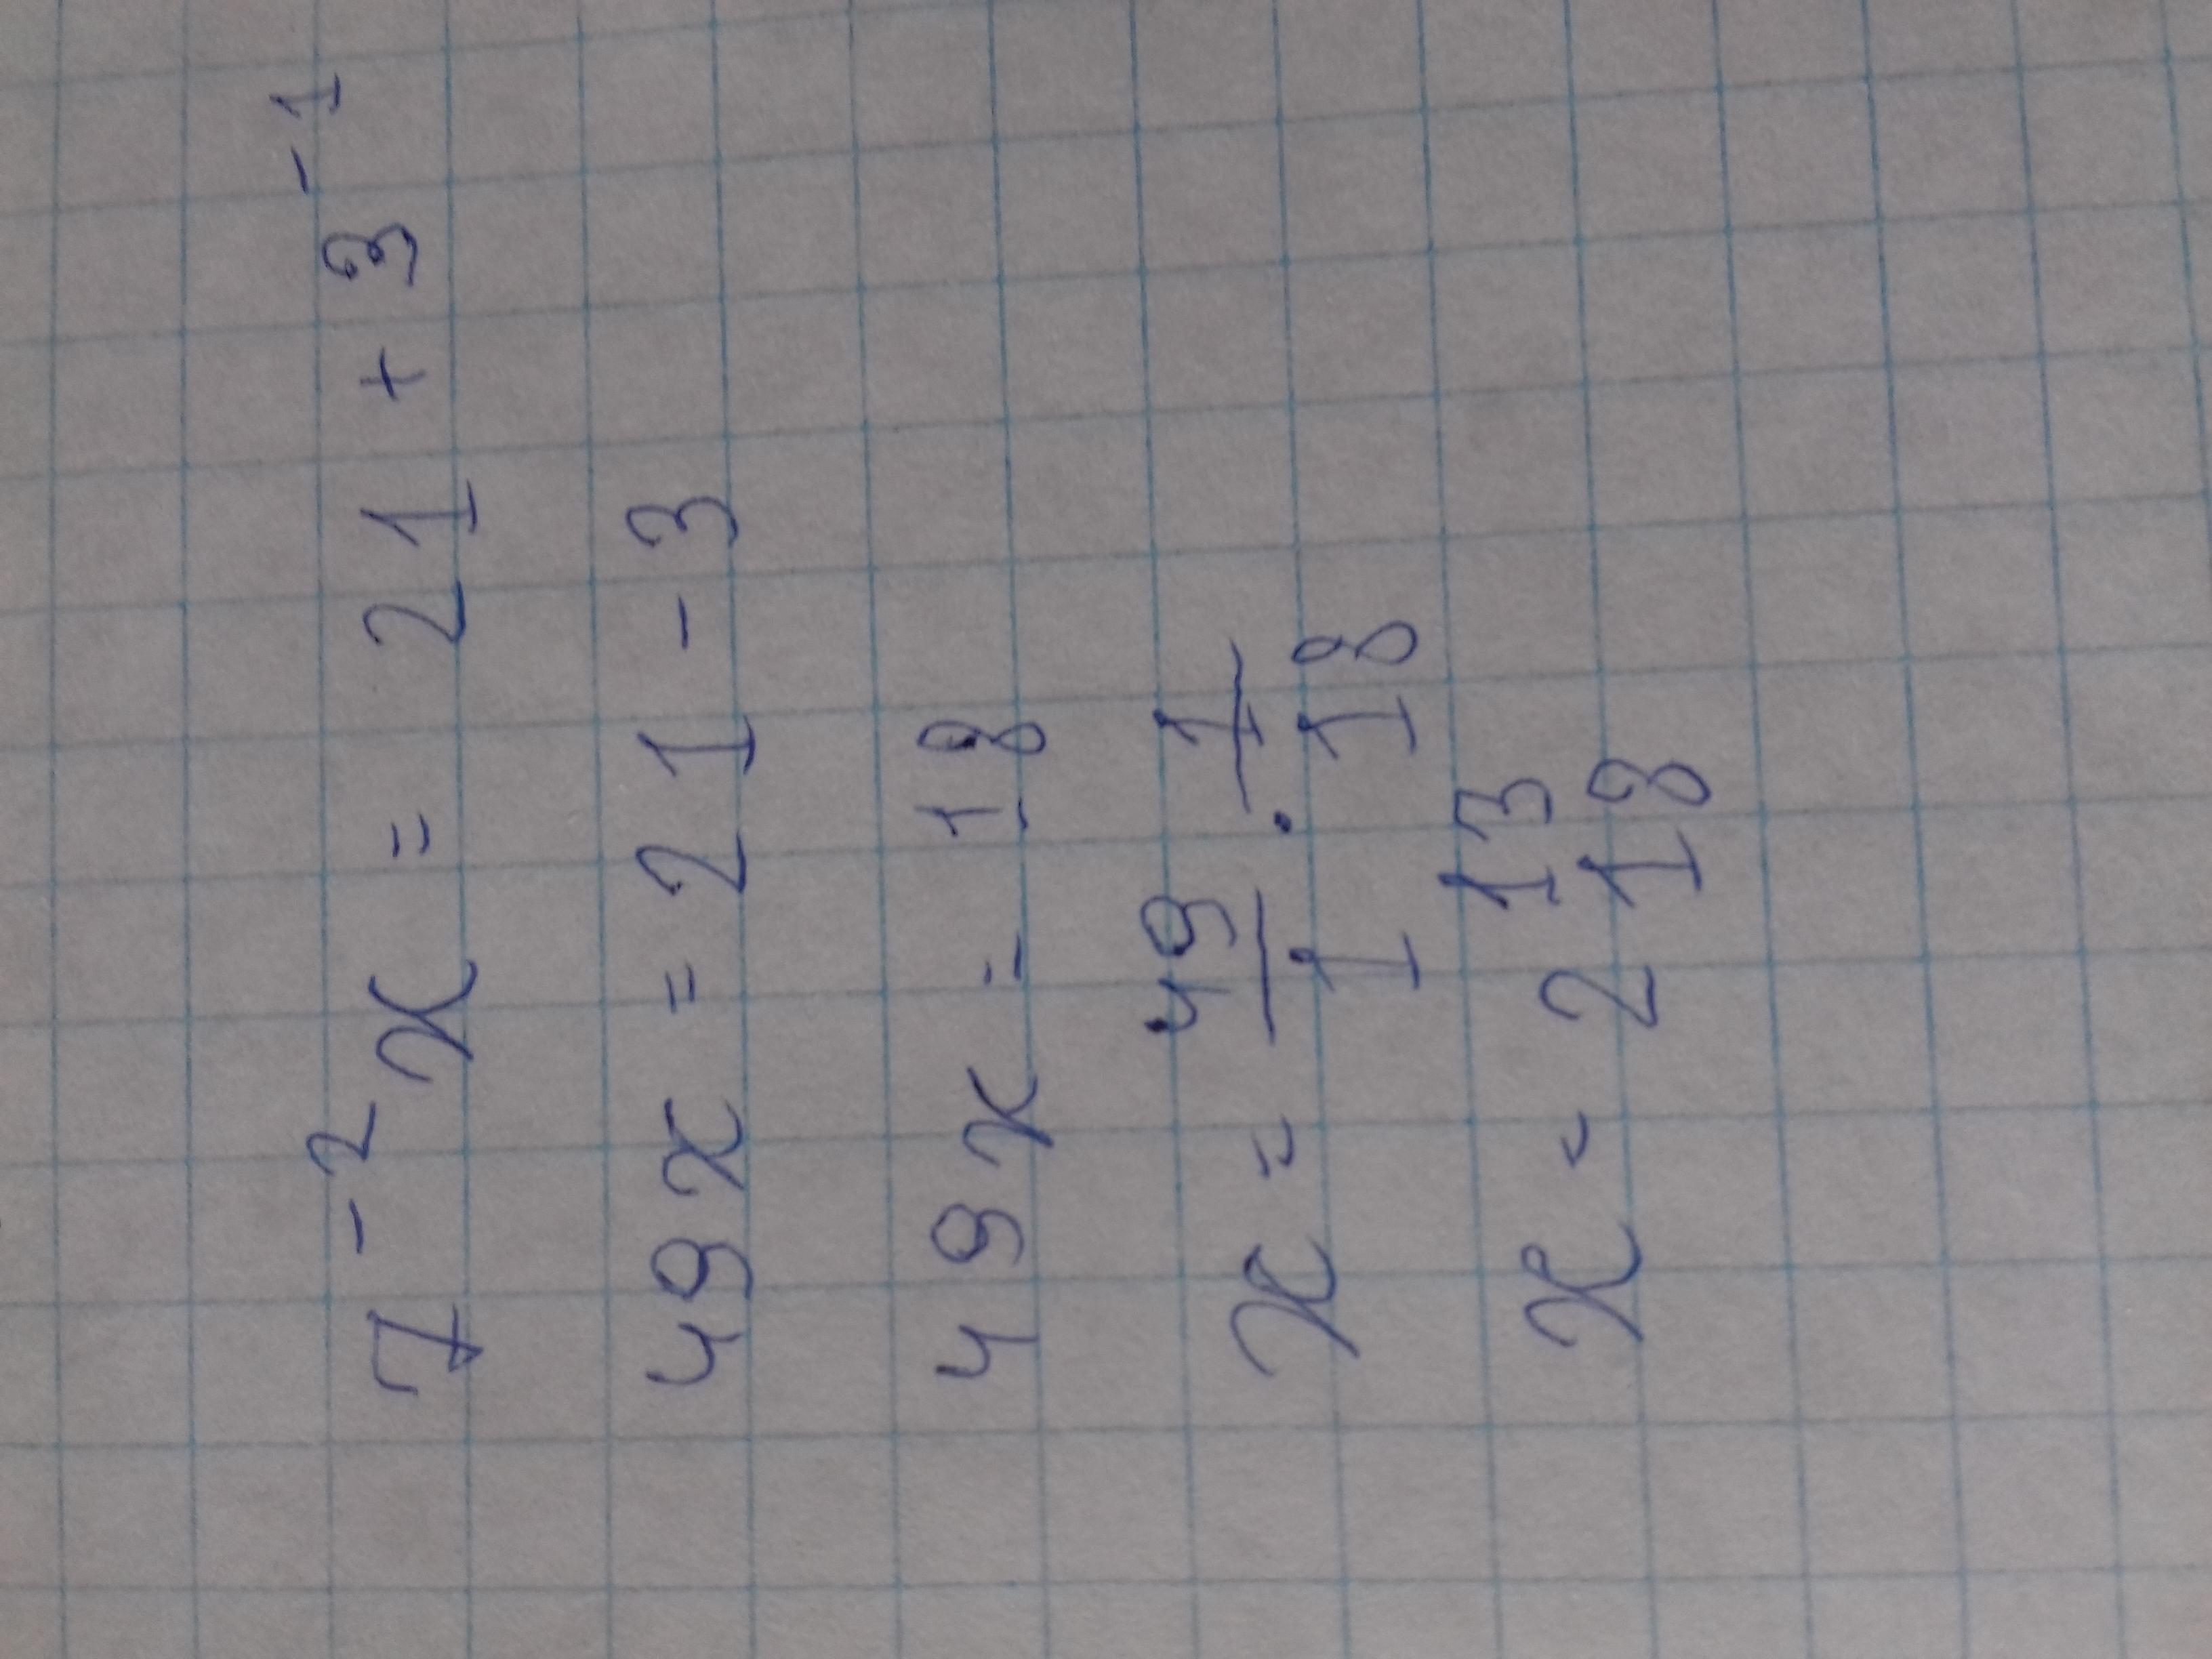 7⁻²x = 21 + 3⁻¹
49x = 21 - 3
49x = 18
x = 49/1 · 1/18
x = 2 13/18